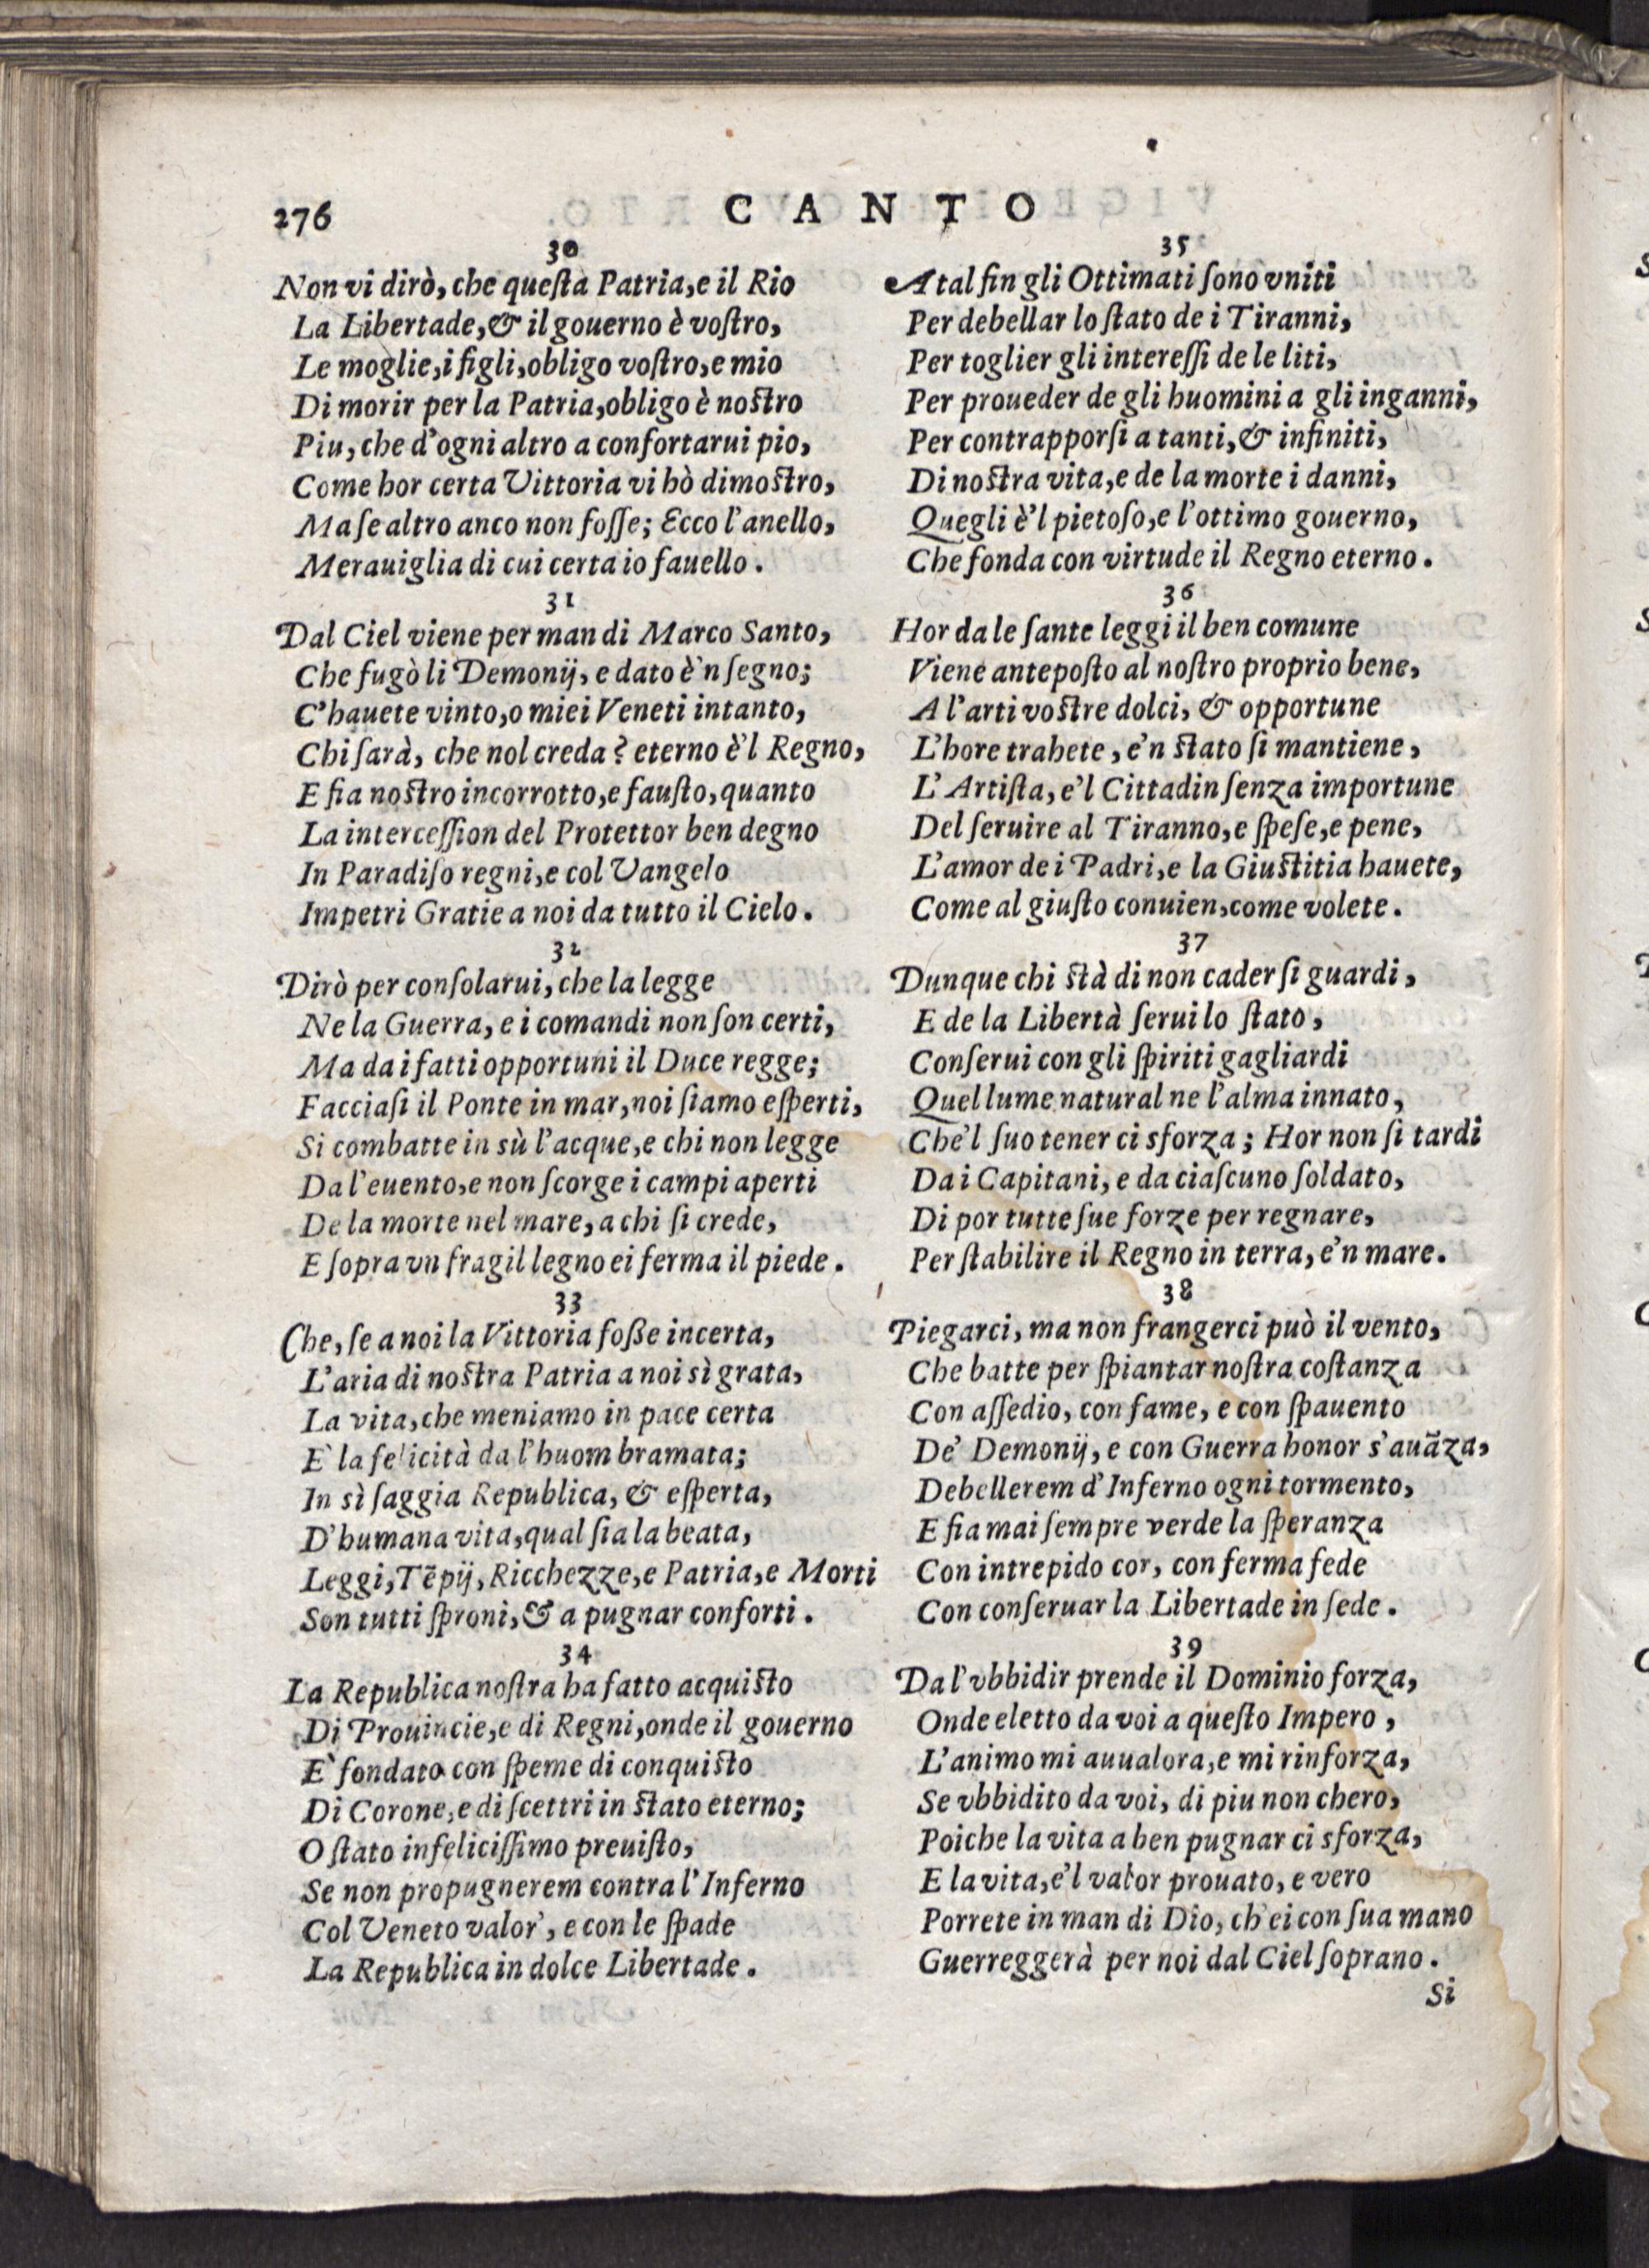 276
CANTO
30
Non vi dirò, che queſta Patria, e il Rio
La Libertade, & il gouerno è voſtro,
Le moglie, i figli, obligo voſtro, e mio
Di morir per la Patria, obligo è noſtro
Piu, che d'ogni altro a confortarui pio,
Come hor certa Vittoria vi hò dimoſtro,
Ma ſe altro anco non foſſe; Ecco l'anello,
Merauiglia di cui certa io fauello.
31
Dal Ciel viene per man di Marco Santo,
Che fugò li Demonij, e dato è'n ſegno;
C'hauete vinto, o miei Veneti intanto,
Chi ſarà, che nol creda? eterno è'l Regno,
E fia noſtro incorrotto, e fauſto, quanto
La interceſſion del Protettor ben degno
In Paradiſo regni, e col Vangelo
Impetri Gratie a noi da tutto il Cielo.
32
Dirò per conſolarui, che la legge
Ne la Guerra, e i comandi non ſon certi,
Ma da i fatti opportuni il Duce regge;
Facciaſi il Ponte in mar, noi ſiamo eſperti,
Si combatte in sù l'acque, e chi non legge
Da l'euento, e non ſcorge i campi aperti
De la morte nel mare, a chi ſi crede,
E ſopra vn fragil legno ei ferma il piede.
33
Che, ſe a noi la Vittoria foße incerta,
L'aria di noſtra Patria a noi sì grata,
La vita, che meniamo in pace certa
E` la felicità da l'huom bramata;
In sì ſaggia Republica, & eſperta,
D'humana vita, qual ſia la beata,
Leggi, Tẽpij, Ricchezze, e Patria, e Morti
Son tutti ſproni, & a pugnar conforti.
34
La Republica noſtra ha fatto acquiſto
Di Prouincie, e di Regni, onde il gouerno
E` fondato con ſpeme di conquiſto
Di Corone, e di ſcettri in ſtato eterno;
O ſtato infeliciſſimo preuiſto,
Se non propugnerem contra l'Inferno
Col Veneto valor', e con le ſpade
La Republica in dolce Libertade.
35
A tal fin gli Ottimati ſono vniti
Per debellar lo ſtato de i Tiranni,
Per toglier gli intereſſi de le liti,
Per proueder de gli huomini a gli inganni,
Per contrapporſi a tanti, & infiniti,
Di noſtra vita, e de la morte i danni,
Quegli è'l pietoſo, e l'ottimo gouerno,
Che fonda con virtude il Regno eterno.
36
Hor da le ſante leggi il ben comune
Viene antepoſto al noſtro proprio bene,
A l'arti voſtre dolci, & opportune
L'hore trahete, e'n ſtato ſi mantiene,
L'Artiſta, e'l Cittadin ſenza importune
Del ſeruire al Tiranno, e ſpeſe, e pene,
L'amor de i Padri, e la Giuſtitia hauete,
Come al giuſto conuien, come volete.
37
Dunque chi ſtà di non cader ſi guardi,
E de la Libertà ſerui lo ſtato,
Conſerui con gli ſpiriti gagliardi
Quel lume natural ne l'alma innato,
Che'l ſuo tener ci sforza; Hor non ſi tardi
Da i Capitani, e da ciaſcuno ſoldato,
Di por tutte ſue forze per regnare,
Per ſtabilire il Regno in terra, e'n mare.
38
Piegarci, ma non frangerci può il vento,
Che batte per ſpiantar noſtra coſtanza
Con aſſedio, con fame, e con ſpauento
De' Demonij, e con Guerra honor s'auãza,
Debellerem d'Inferno ogni tormento,
E fia mai ſempre verde la ſperanza
Con intrepido cor, con ferma fede
Con conſeruar la Libertade in ſede.
39
Da l'vbbidir prende il Dominio forza,
Onde eletto da voi a queſto Impero,
L'animo mi auualora, e mi rinforza,
Se vbbidito da voi, di piu non chero,
Poiche la vita a ben pugnar ci sforza,
E la vita, e'l valor prouato, e vero
Porrete in man di Dio, ch'ei con ſua mano
Guerreggerà per noi dal Ciel ſoprano.
Si